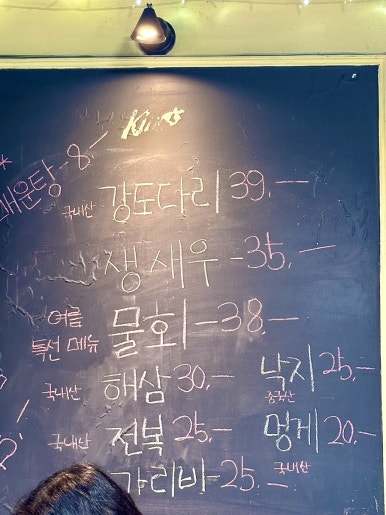 매운탕 8.-
국내산 강도다리 39.-
생새우 - 35.-
여름
특선 메뉴 물회 - 38.-
국내산 해삼 30.- 낙지 25.-
중국산
국내산 전복 25.- 멍게 20.-
국내산
가리비 - 25.-